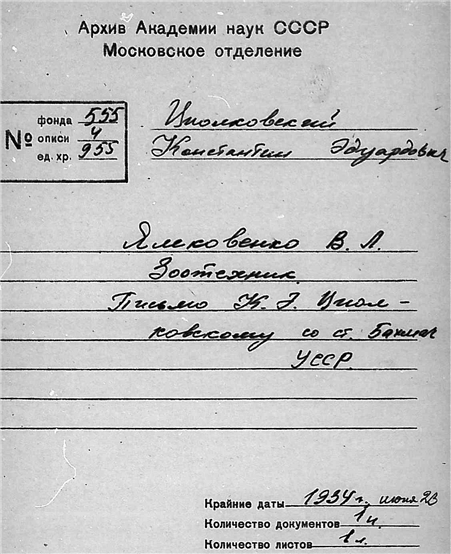 Архив Академии наук СССР
Московское отделение
№
фонда 555
описи 4
ед. хр. 955
Циолковский
Константин Эдуардович
Ялековенко В. Л.
Зоотехник.
Письмо К. Э. Циол-
ковскому со ст. Бахмач
УССР.
Крайние даты 1934 г. июня 23
Количество документов 1
Количество листов 1 л.